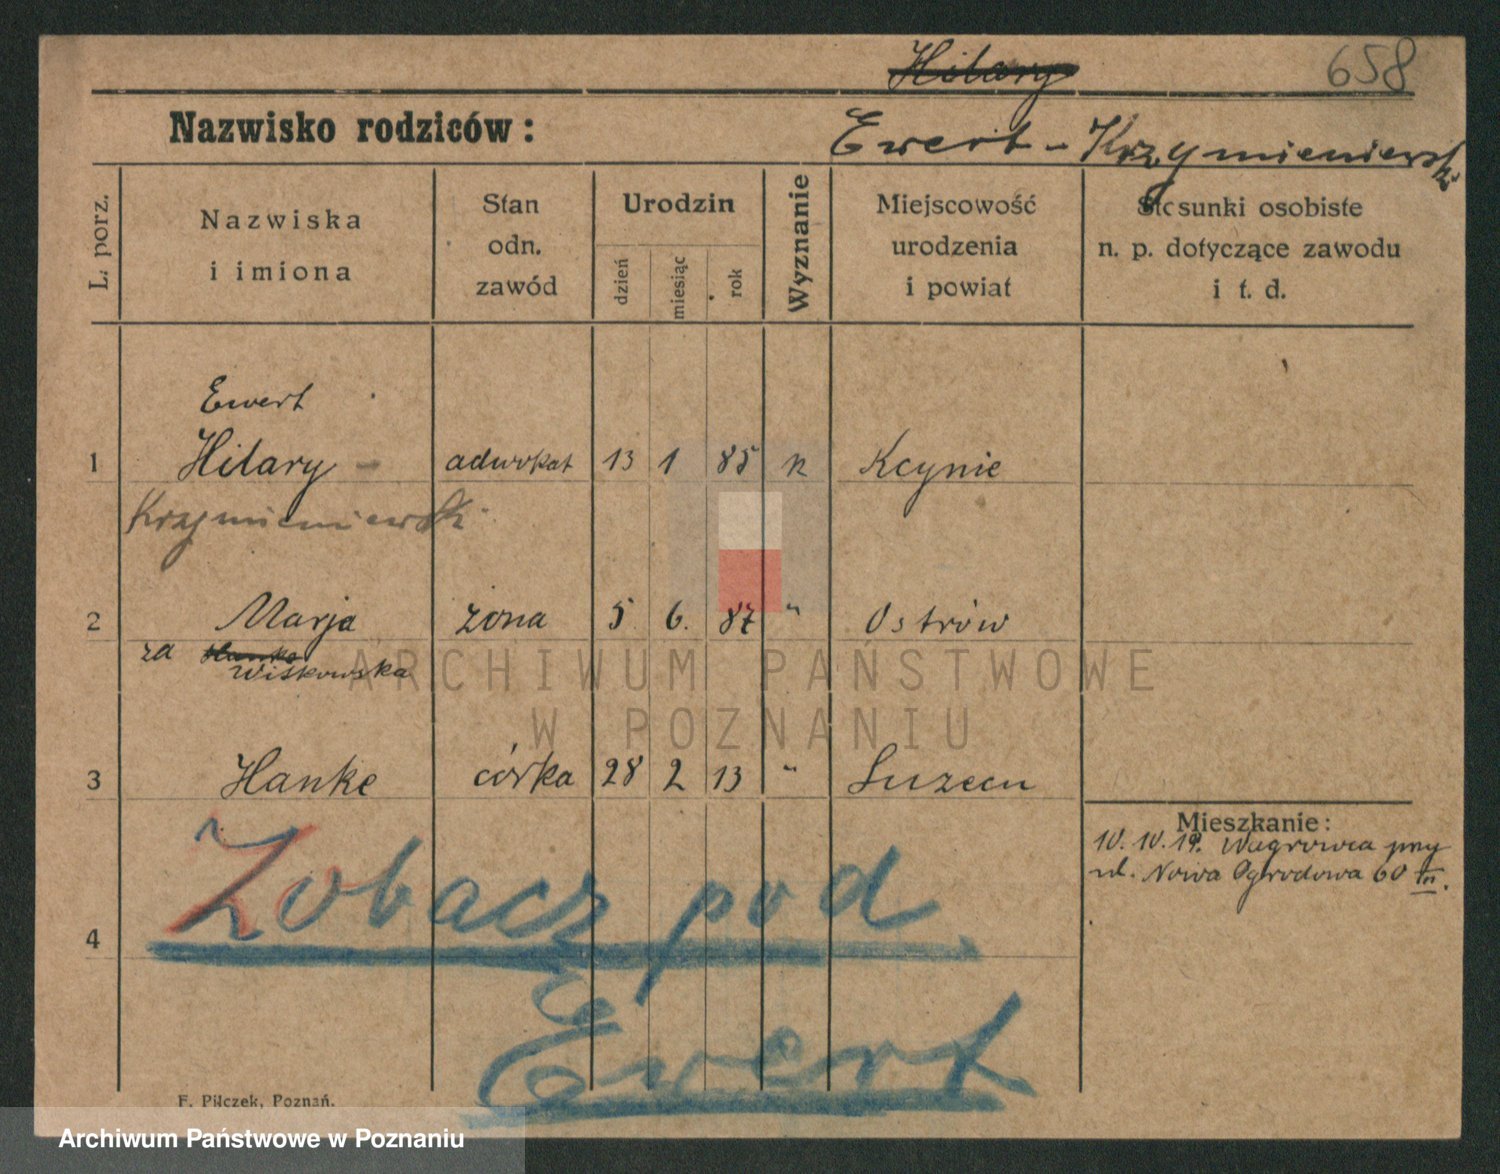 Hilary 658
Nazwisko rodziców: Ewert - Krzymieniewski
L. porz.
Nazwiska
i imiona
Stan
odn.
zawód
Urodzin
dzień
miesiąc
rok
Wyznanie
Miejscowość
urodzenia
i powiat
Stosunki osobiste
n. p. dotyczące zawodu
i t. d.
Ewert
1 Hilary - adwokat 13 1 85 k Kcynie
Krzymieniewski
2 Marja żona 5 6. 87 " Ostrów
za Hanke
Wiśkowska
3 Hanke córka 28 2 13 "
Mieszkanie:
10. 10. 19. Wągrowca przy
ul. Nowa Ogrodowa 60 III.
4 Zobacz pod
Ewert
F. Pilczek, Poznań.
ARCHIWUM PAŃSTWOWE
W POZNANIU
Archiwum Państwowe w Poznaniu